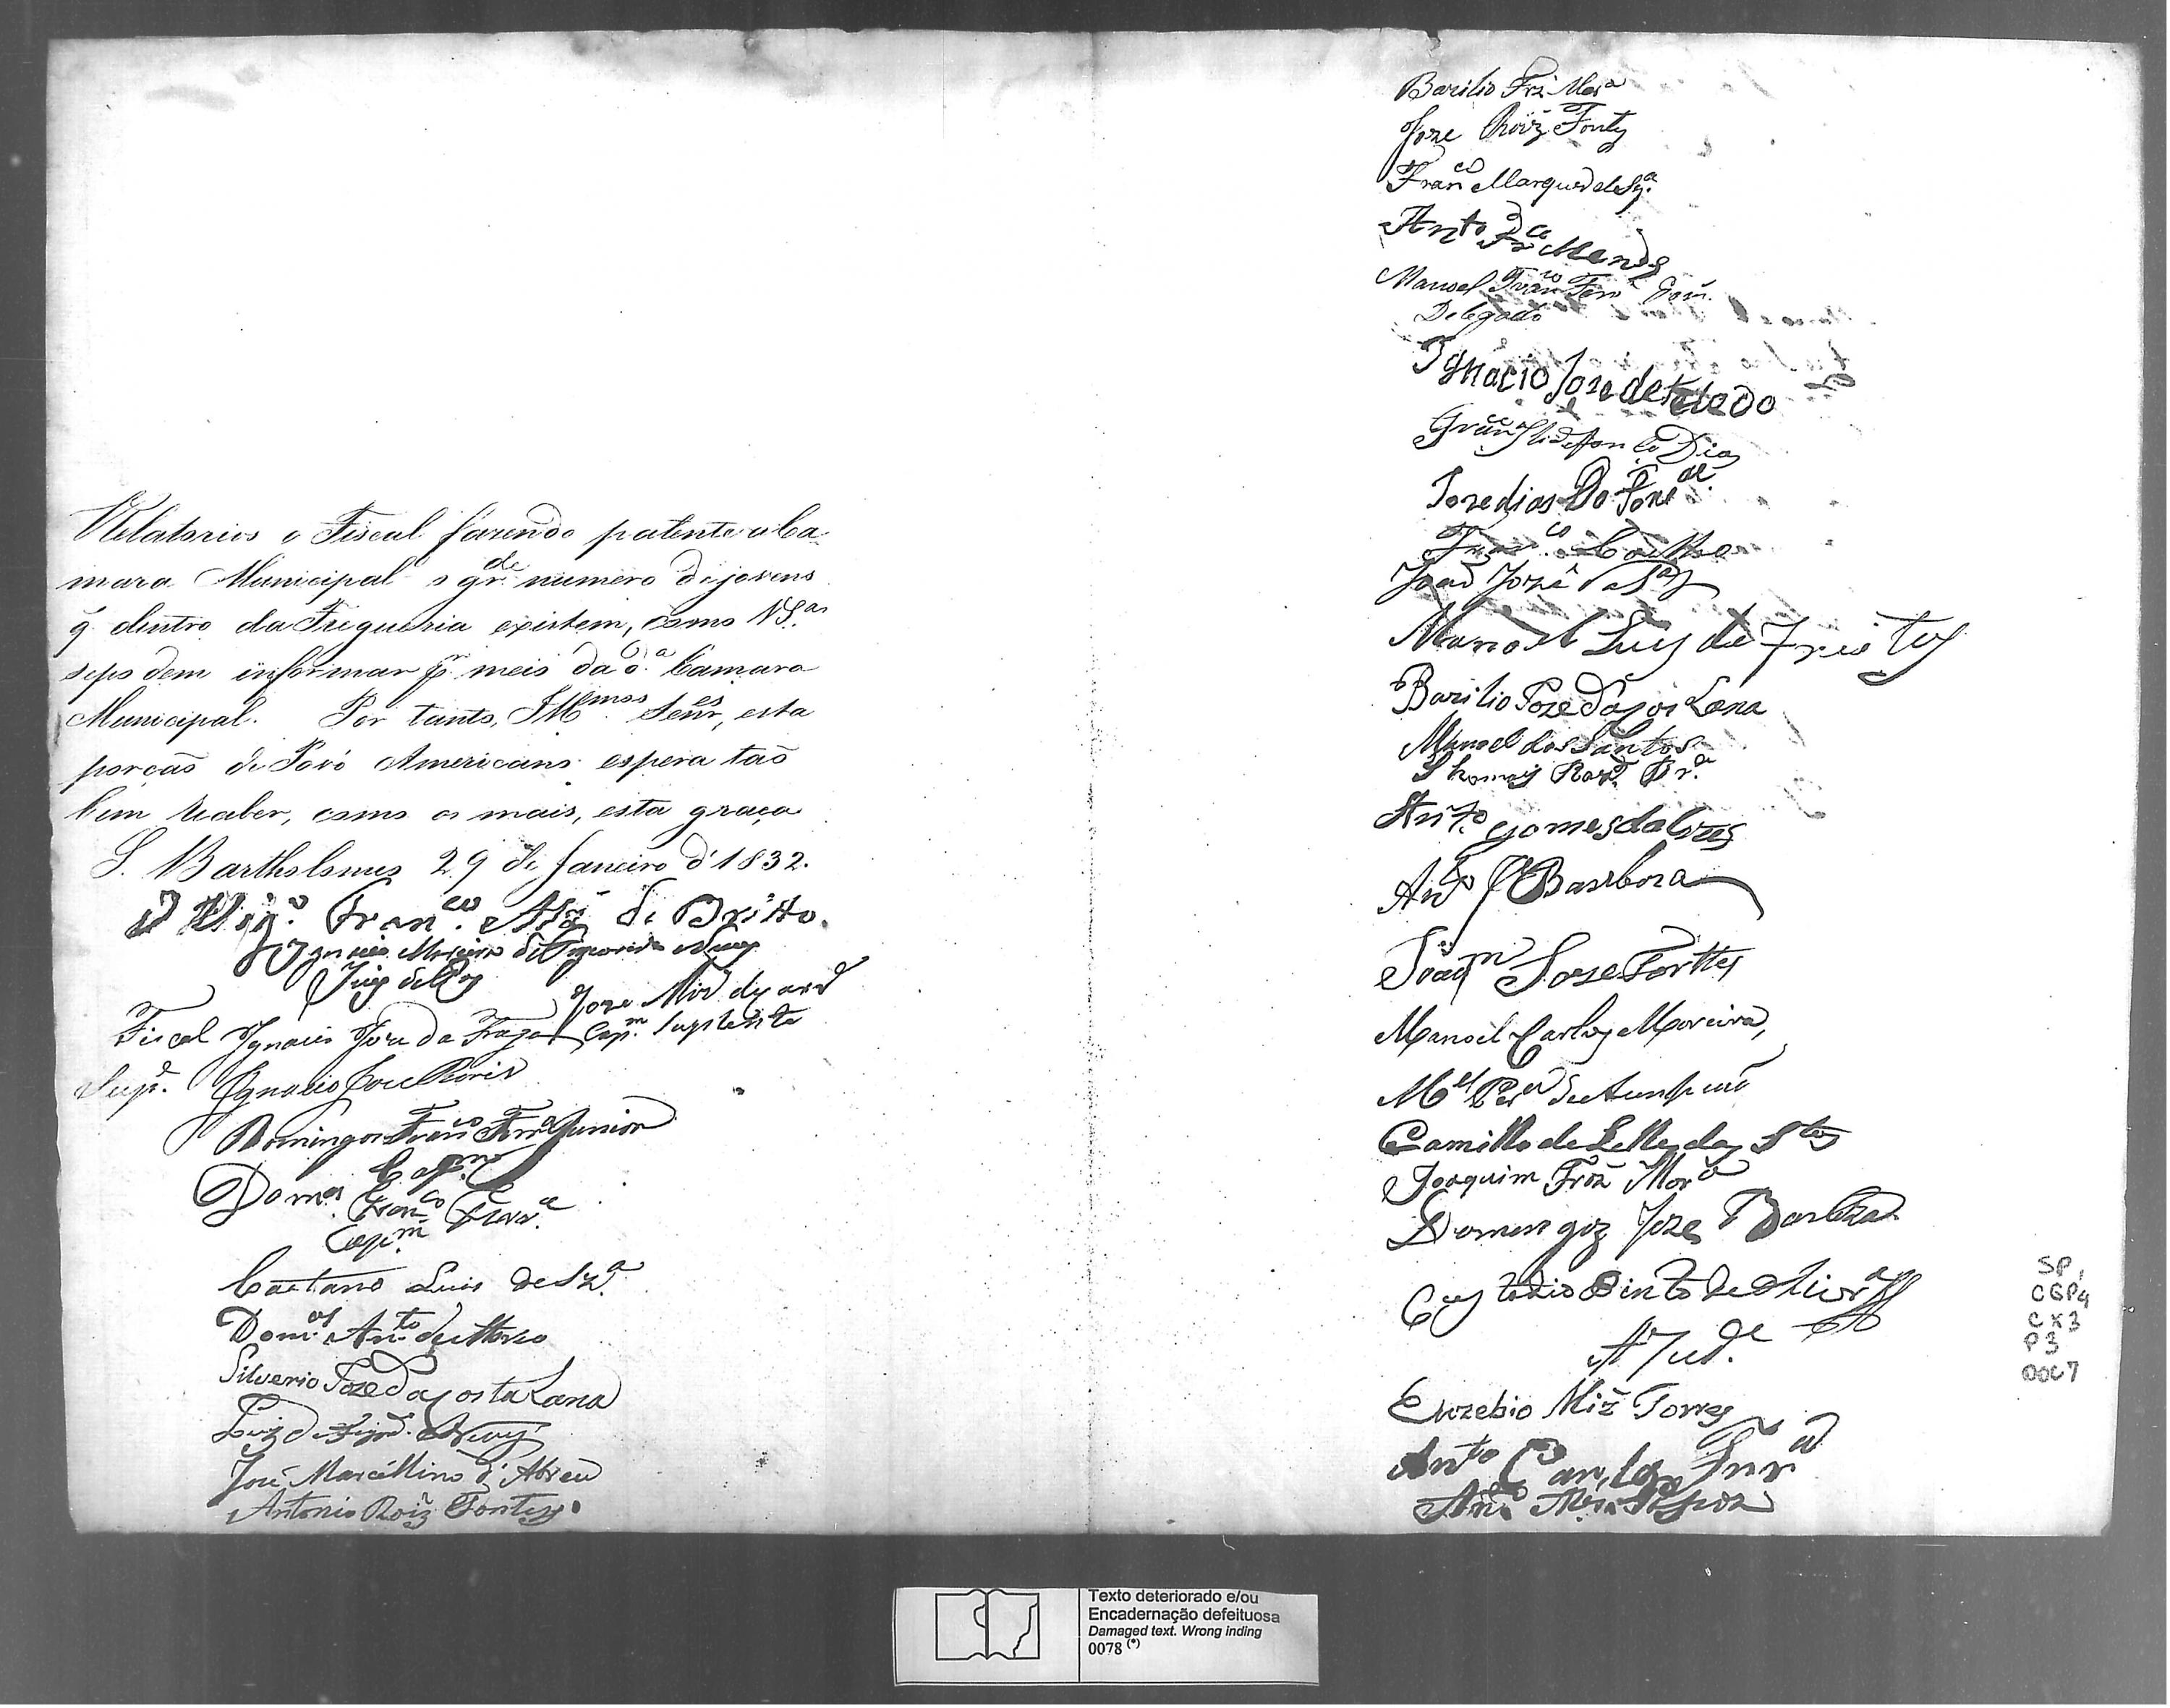 Relatorios o Fiscal fazendo patente a Ca
mara Municipal o gr.de numero de jovens
q̃ dentro da Freguezia existem, como VS.as
se podem informar pr. meio da d.a Camara
Municipal. Por tanto, Illmos Senres, esta
porçaõ de Povo Americano espera taõ
bem receber, como os mais, esta graça
S. Bartholomeu 29 de Janeiro d'1832.
O Vigr.o Fran.co Alz̃ de Britto.
Ignacio Moreira
Juiz de Paz
Jose
Fiscal Ignacio Joze da Cap.m Suplente
Sup.e Ignacio Joze
Domingos Fran.co Ferr.a Junior
Cap.m
Dom.os Fran.co
Cap.m
Caetano Luis de Sz.a
Dom.os An.to de
Silverio Joze Da Costa Lana
Luiz de
José Marcellino d'Abreu
Antonio Roiz̃ Fontes.
Bazilio Frz̃ Mor.a
Joze Roiz̃ Fontes
Fran.co Marques de Sz.a
Ant.o Mendes
Manoel Fran.co Ferr.a
Delegado
Ignacio Joze de Toledo
Fran.co Dias
Joze dias Do
Fran.co Coelho
João José da S.a
Manoel Luis de Freitas
Bazilio Joze Da Costa Lana
Manoel dos Santos
Thomas
Ant.o Gomes
Ant.o Barboza
Joaq.m Joze Fortes
Manoel Carlos Moreira,
M.el Per.a de
Camillo de Lellys dos S.tos
Joaquim Frz̃ Mor.a
Domingos Joze Barboza
Custodio Pinto de Olivr.a
Ajud.e
Euzebio Miz̃ Torres
Ant.o Carlos Ferr.a
An.to
SP,
CGP4
CX3
P3
DOC7
Texto deteriorado e/ou
Encadernação defeituosa
Damaged text. Wrong inding
0078 (*)